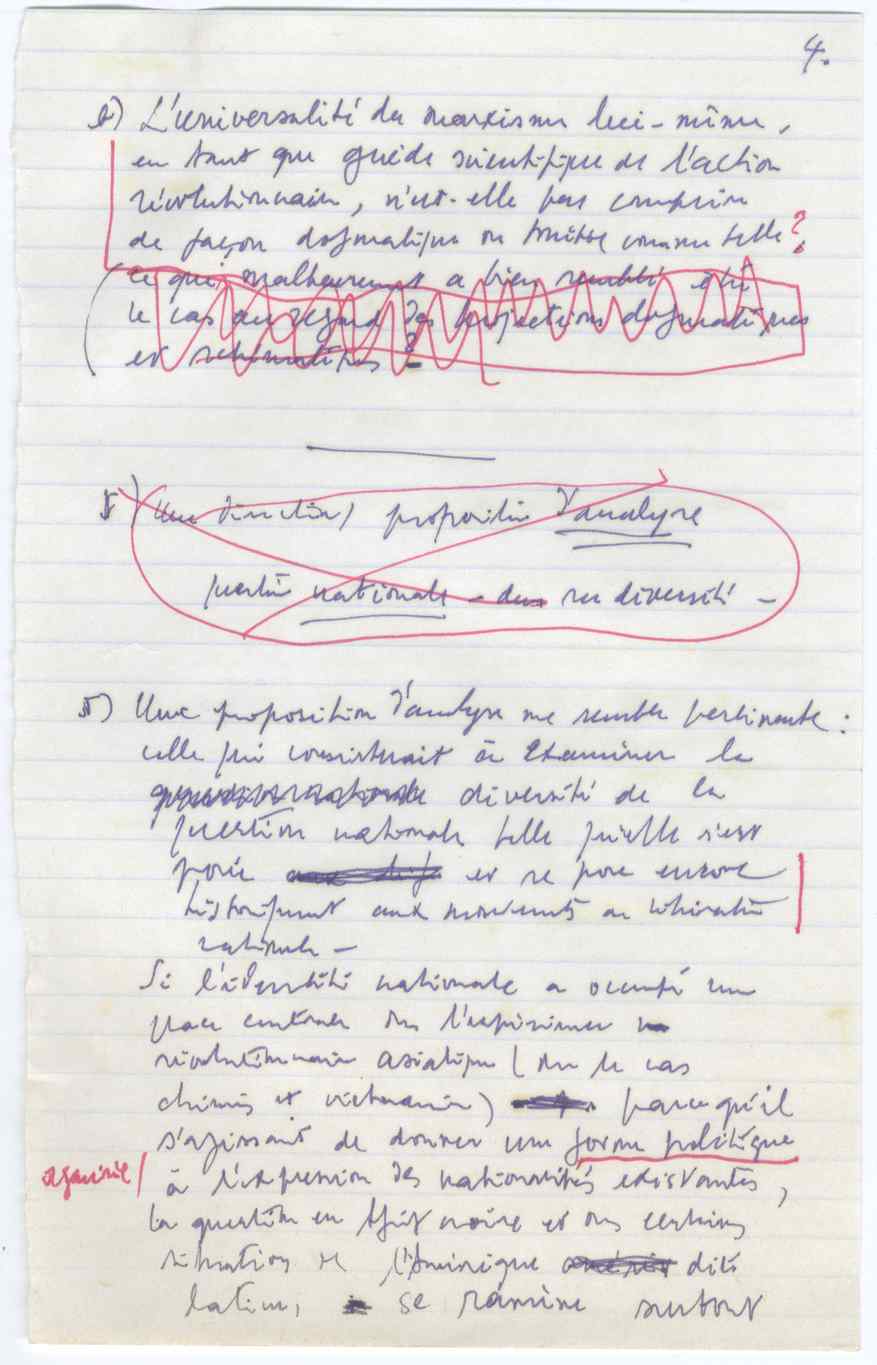 4.
L'universalité du marxisme lui-même,
en tant que guide scientifique de l'action
révolutionnaire, n'est-elle pas comprise
de façon dogmatique ou traitée comme telle ?
(ce qui malheureusement a bien semblé été
le cas au regard des projections dogmatiques
et schématiques ?
Une direction / proposition d'analyse
question nationale - dans sa diversité -
Une proposition d'analyse me semble pertinente :
celle qui consisterait à examiner la
diversité de la
question nationale telle qu'elle s'est
posée et se pose encore
historiquement aux mouvements de libération
nationale -
Si l'identité nationale a occupé une
place centrale dans l'expérience
révolutionnaire asiatique (dans le cas
chinois et vietnamien) parce qu'il
s'agissait de donner une forme politique
à l'expression des nationalités existantes,
la question en Afrique noire et dans certaines
situations de l'Amérique dite
latine, se ramène surtout